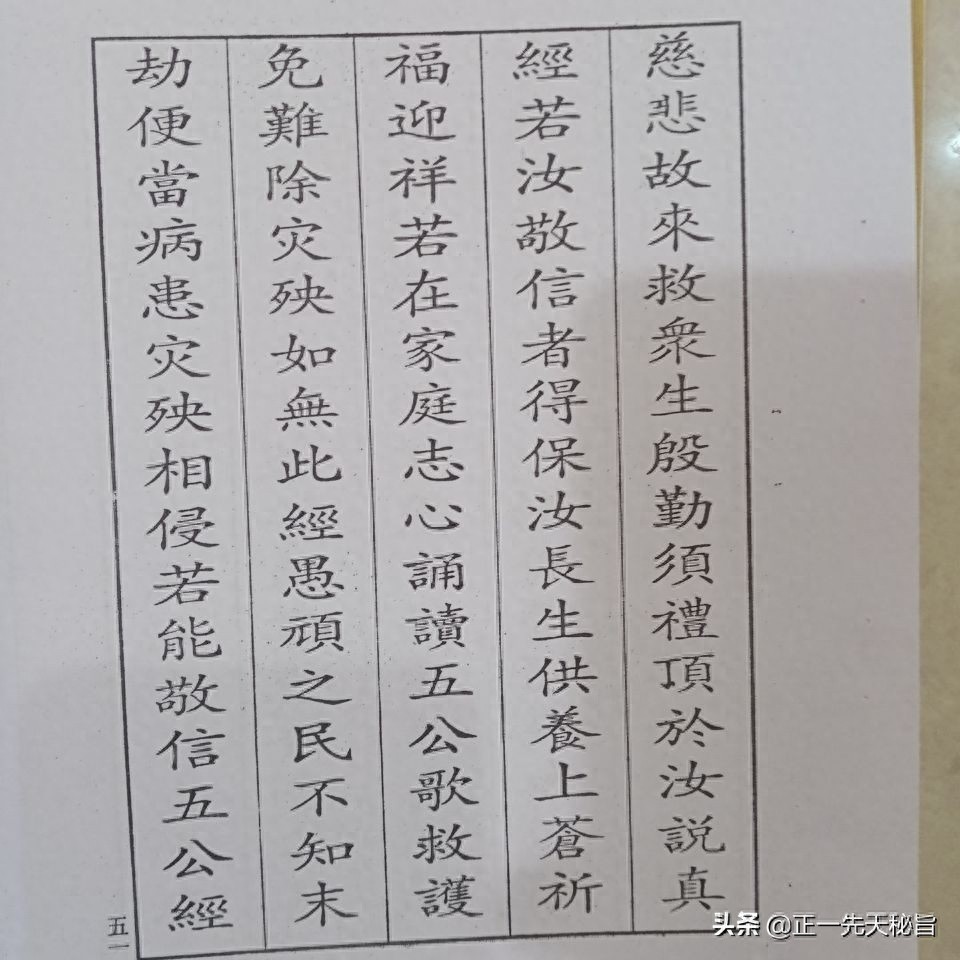 慈悲故來救衆生殷勤須禮頂於汝説真
經若汝敬信者得保汝長生供養上蒼祈
福迎祥若在家庭志心誦讀五公歌救護
免難除灾殃如無此經愚頑之民不知末
劫便當病患灾殃相侵若能敬信五公經
五一
头条 @正一先天秘旨